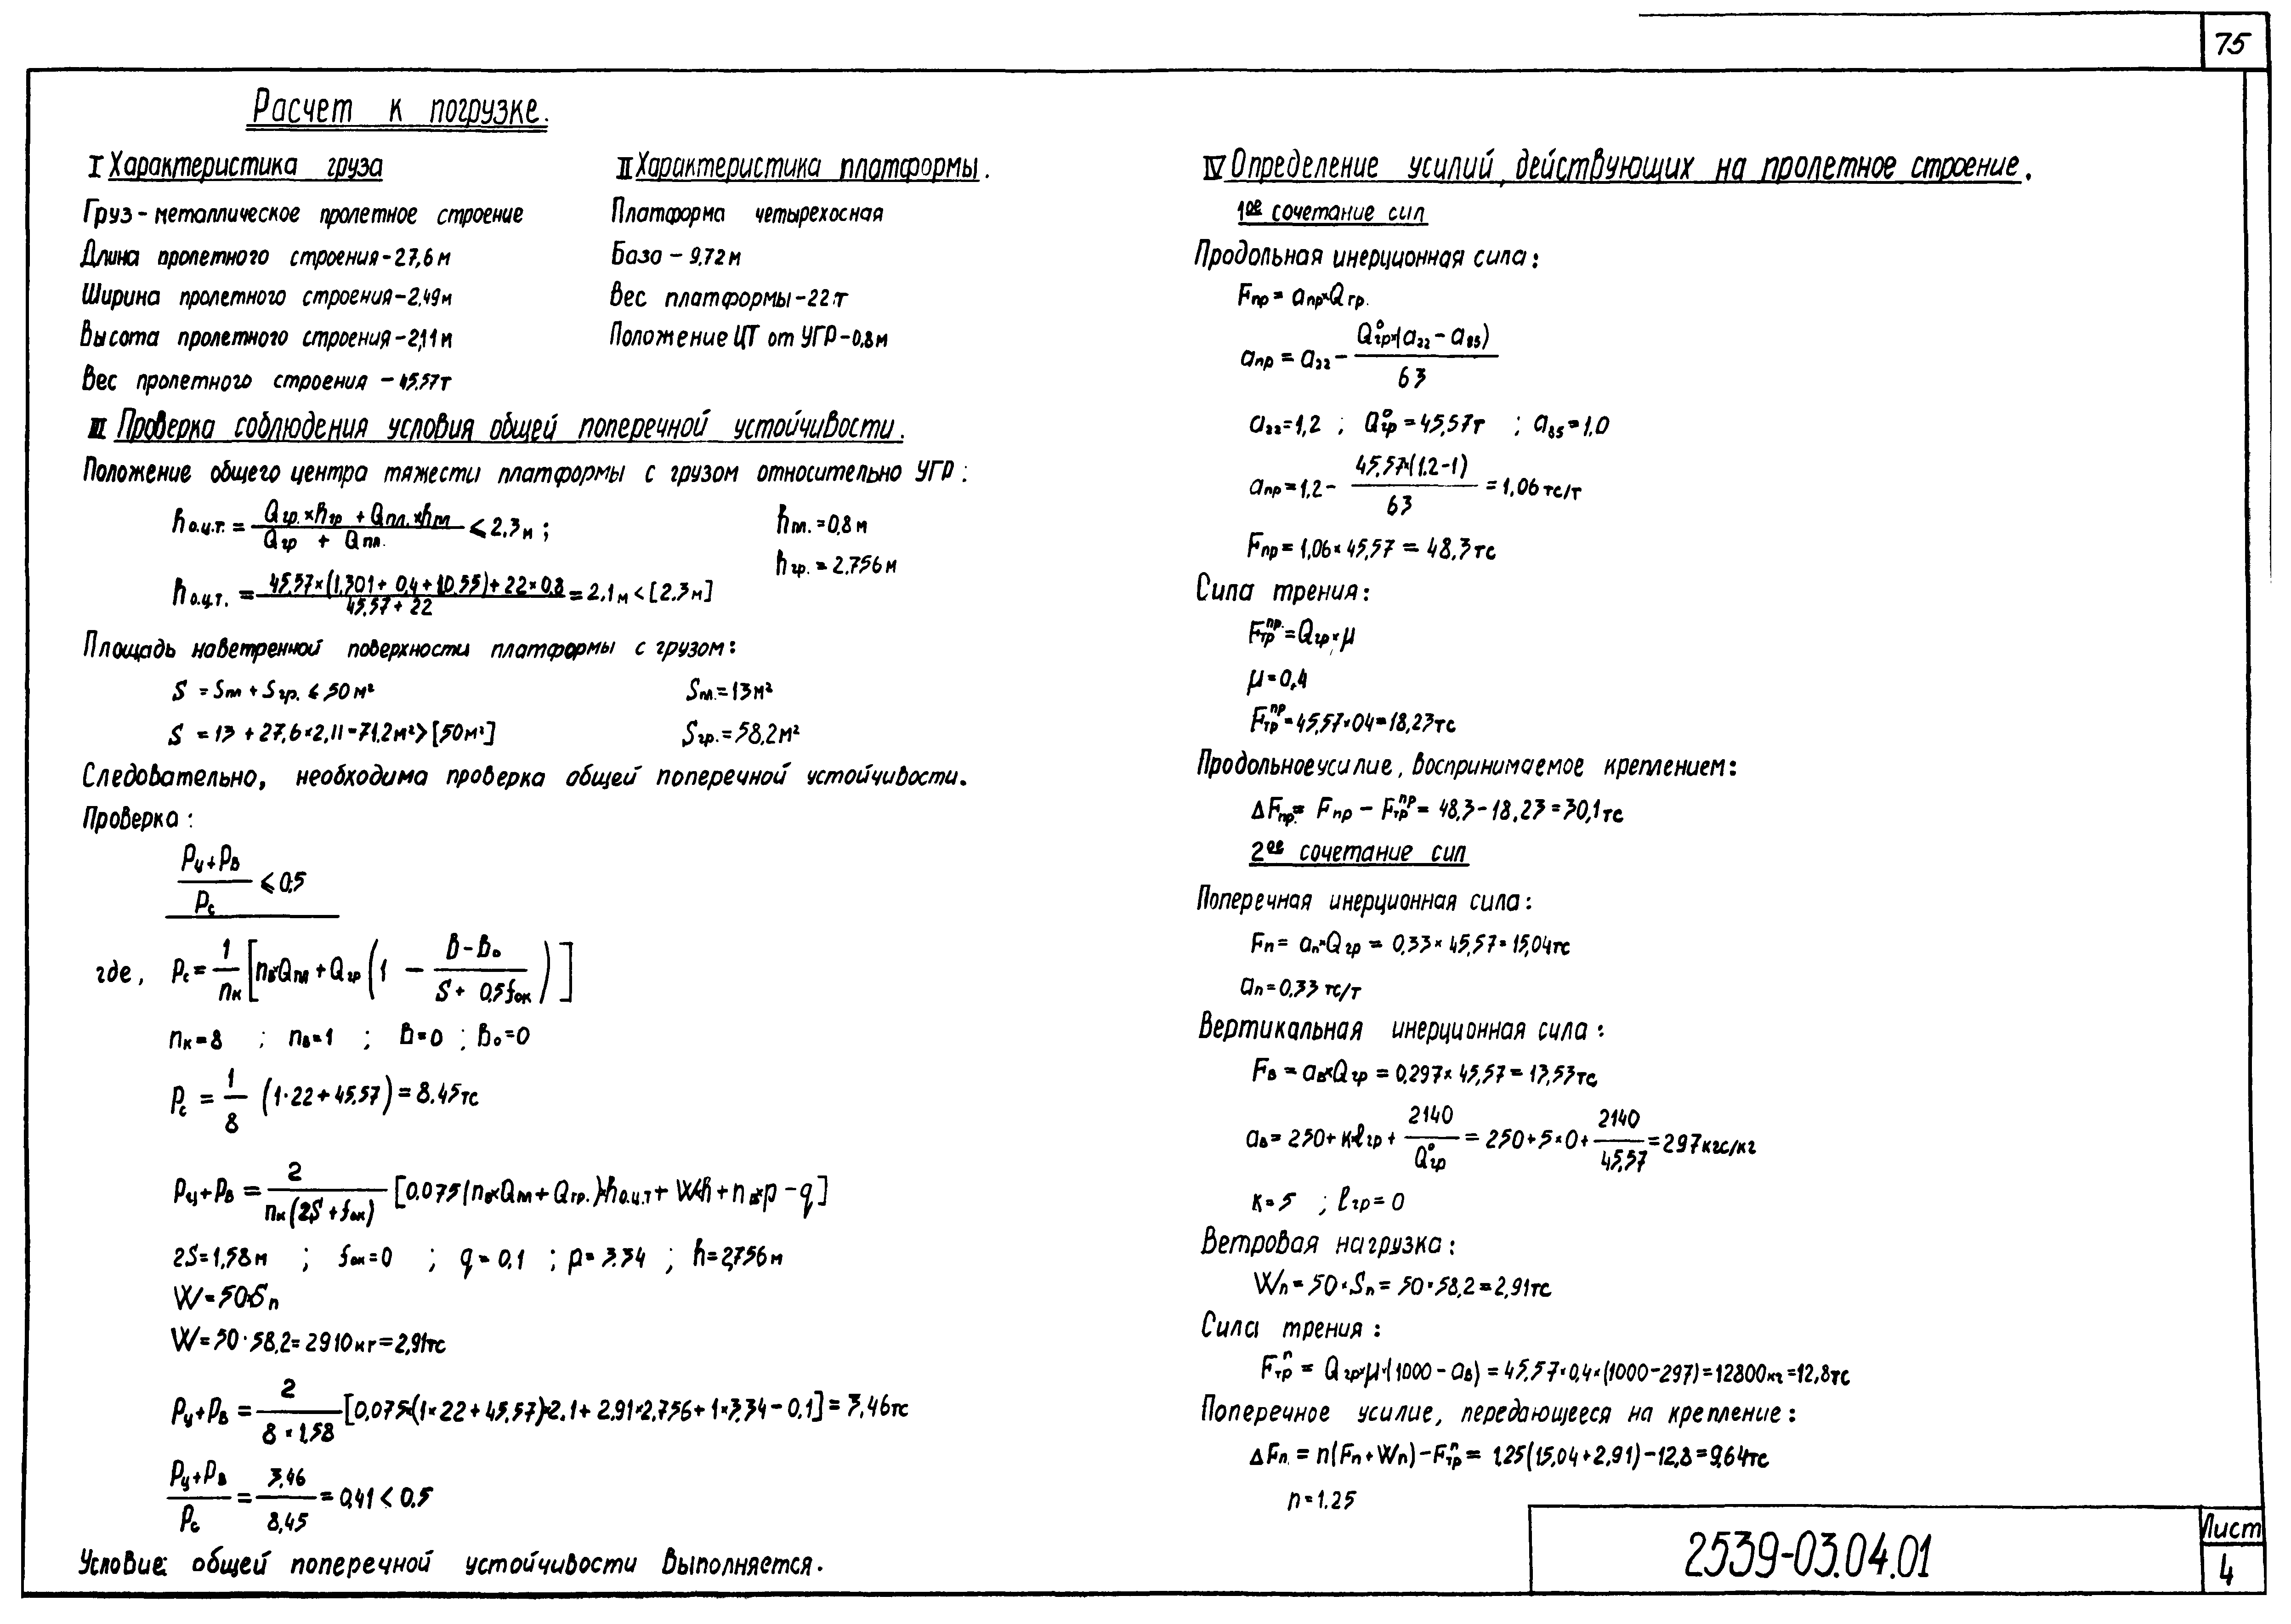 75
Расчет к погрузке.
I Характеристика груза
Груз - металлическое пролетное строение
Длина пролетного строения - 27,6 м
Ширина пролетного строения - 2,49м
Высота пролетного строения - 2,11 м
Вес пролетного строения - 45,57т
II Характеристика платформы.
Платформа четырехосная
База - 9,72 м
Вес платформы - 22 т
Положение ЦТ от УГР - 0,8 м
III Проверка соблюдения условия общей поперечной устойчивости.
Положение общего центра тяжести платформы с грузом относительно УГР:
hо.ц.т. = (Qгр. × hгр + Qпл. × hпл) / (Qгр + Qпл.) ≤ 2.3м ; hпл. = 0,8 м
hгр. = 2.756 м
hо.ц.т. = (45,57×(1,301 + 0,4 + 10.55) + 22×0,8) / (45,57 + 22) = 2.1м < [2.3м]
Площадь наветренной поверхности платформы с грузом:
S = Sпл + Sгр. ≤ 50 м² Sпл. = 13 м²
S = 13 + 27,6×2,11 = 71.2м² > [50м²] Sгр. = 58,2 м²
Следовательно, необходима проверка общей поперечной устойчивости.
Проверка:
(Pц + Pв) / Pс ≤ 0,5
где, Pс = 1/nк [nв×Qпл + Qгр (1 - (в - в₀) / (S + 0,5fок))]
nк = 8 ; nв = 1 ; в = 0 ; в₀ = 0
Pс = 1/8 (1·22 + 45,57) = 8.45тс
Pц + Pв = 2 / (nк(2S + fок)) [0.075(nв×Qпл + Qгр.)×hо.ц.т + W×h + nв×p - q]
2S = 1,58 м ; fок = 0 ; q = 0,1 ; p = 3.34 ; h = 2,756 м
W = 50×Sп
W = 50·58,2 = 2910 кг = 2,91тс
Pц + Pв = 2 / (8 × 1,58) [0,075×(1×22 + 45,57)×2.1 + 2.91×2,756 + 1×3,34 - 0,1] = 3,46тс
(Pц + Pв) / Pс = 3,46 / 8,45 = 0,41 < 0.5
Условие общей поперечной устойчивости выполняется.
IV Определение усилий, действующих на пролетное строение.
1ое сочетание сил
Продольная инерционная сила:
Fпр = апр×Qгр.
апр = а₂₂ - Q°гр×(а₂₂ - а₈₅) / 63
а₂₂ = 1,2 ; Q°гр = 45,57т ; а₈₅ = 1,0
апр = 1,2 - 45,57×(1.2 - 1) / 63 = 1,06 тс/т
Fпр = 1,06 × 45,57 = 48,3 тс
Сила трения:
Fтрпр. = Qгр×μ
μ = 0,4
Fтрпр = 45,57×04 = 18,23тс
Продольное усилие, воспринимаемое креплением:
ΔFпр. = Fпр - Fтрпр = 48,3 - 18,23 = 30,1 тс
2ое сочетание сил
Поперечная инерционная сила:
Fп = ап×Qгр = 0,33 × 45,57 = 15,04тс
ап = 0,33 тс/т
Вертикальная инерционная сила:
Fв = ав×Qгр = 0,297 × 45,57 = 13,53тс
ав = 250 + к×ℓгр + 2140 / Q°гр = 250 + 5×0 + 2140 / 45,57 = 297 кгс/кг
к = 5 ; ℓгр = 0
Ветровая нагрузка:
Wп = 50×Sп = 50·58,2 = 2,91тс
Сила трения:
Fтрп = Qгр×μ·(1000 - ав) = 45,57×0,4×(1000 - 297) = 12800кг = 12,8тс
Поперечное усилие, передающееся на крепление:
ΔFп. = n(Fп + Wп) - Fтрп = 1,25(15,04 + 2,91) - 12,8 = 9,64тс
n = 1.25
2539-03.04.01
Лист
4